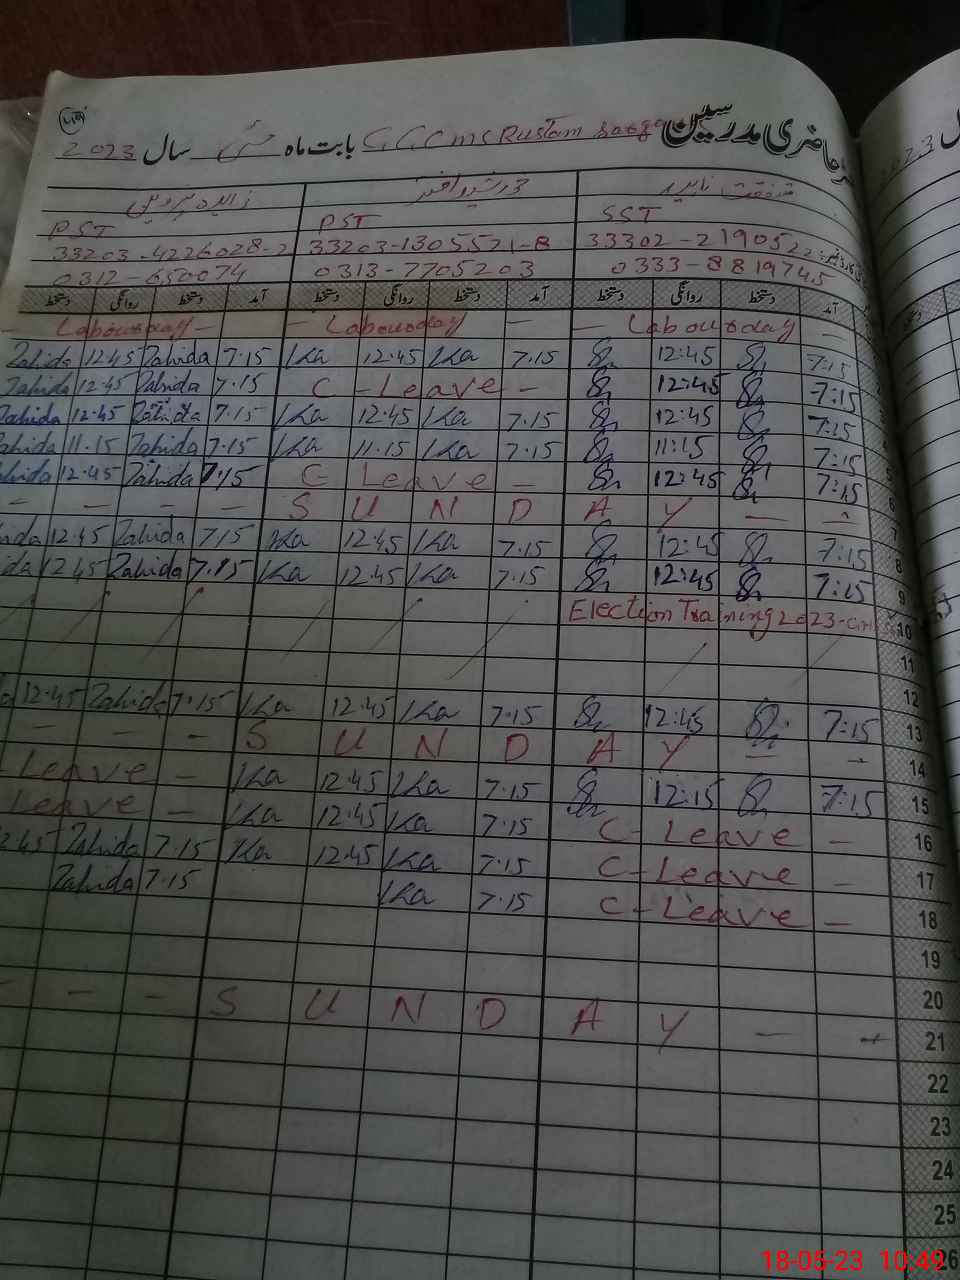 حاضری مدرسین GGCMS Rustam Sarga بابت ماہ مئی سال 2023
شفقت ناہید
زاہدہ پروین
PST PST SST
33203-4226028-2 33203-1305521-8 33302-219052
0312-650074 0313-7705203 0333-8819745
دستخط روانگی دستخط آمد دستخط روانگی دستخط آمد دستخط روانگی دستخط آمد
Labourday - - Labourday - - Labourday -
Zahida 12:45 Zahida 7.15 Ka 12.45 Ka 7.15 12:45 7:15
Zahida 12:45 Zahida 7.15 C - Leave - 12:45 7:15
Zahida 12.45 Zahida 7.15 Ka 12.45 Ka 7.15 12:45 7:15 4
Zahida 11.15 Zahida 7.15 Ka 11.15 Ka 7.15 11:15 7:15 5
Zahida 12.45 Zahida 7.15 C Leave - 12:45 7:15 6
- - - - S U N D A Y - - 7
ida 12.45 Zahida 7.15 Ka 12.45 Ka 7.15 12:45 7:15 8
ida 12.45 Zahida 7.15 Ka 12:45 Ka 7.15 12:45 7:15 9
Election Training 2023- 10
11
12
12.45 Zahida 7.15 Ka 12.45 Ka 7.15 12:45 7:15 13
- - - S U N D A Y - - 14
Leave - Ka 12.45 Ka 7.15 12:15 7:15 15
Leave - Ka 12.45 Ka 7.15 C - Leave - 16
2:45 Zahida 7.15 Ka 12.45 Ka 7.15 C - Leave - 17
Zahida 7.15 Ka 7.15 C - Leave - 18
19
20
- - - S U N D A Y - - 21
22
23
24
25
26
18-05-23 10:49